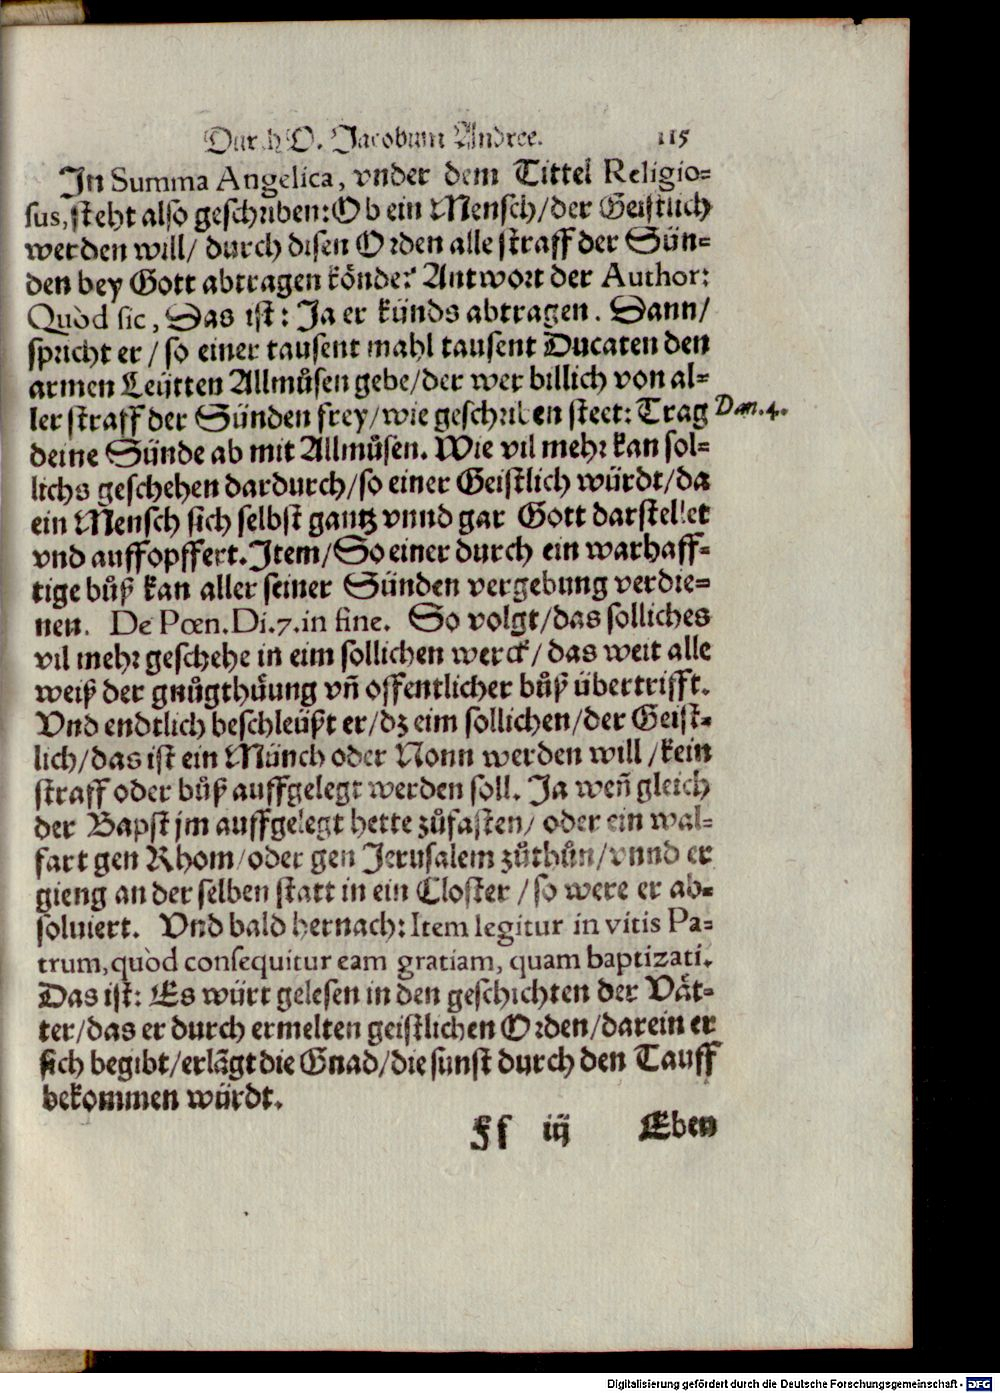 Durch D. Jacobum Andree. 115
In Summa Angelica, vnder dem Tittel Religio=
sus, steht also geschriben: Ob ein Mensch/der Geistlich
werden will/ durch disen Orden alle straff der Sün=
den bey Gott abtragen könde? Antwort der Author:
Quòd sic, Das ist: Ja er künds abtragen. Dann/
spricht er/ so einer tausent mahl tausent Ducaten den
armen Leütten Allmůsen gebe/der wer billich von al=
ler straff der Sünden frey/wie geschriben steet: Trag
Dan. 4.
deine Sünde ab mit Allmůsen. Wie vil mehr kan sol=
lichs geschehen dardurch/so einer Geistlich würdt/da
ein Mensch sich selbst gantz vnnd gar Gott darstellet
vnd auffopffert. Item/So einer durch ein warhaff=
tige bůß kan aller seiner Sünden vergebung verdie=
nen. De Pœn. Di. 7. in fine. So volgt/das solliches
vil mehr geschehe in eim sollichen werck/ das weit alle
weiß der gnůgthüung vñ offentlicher bůß übertrifft.
Vnd endtlich beschleüßt er/dz eim sollichen/der Geist=
lich/das ist ein Münch oder Nonn werden will/kein
straff oder bůß auffgelegt werden soll. Ja weñ gleich
der Bapst jm auffgelegt hette zůfasten/ oder ein wal=
fart gen Rhom/oder gen Jerusalem zůthůn/vnnd er
gieng an der selben statt in ein Closter/so were er ab=
soluiert. Vnd bald hernach: Item legitur in vitis Pa=
trum, quòd consequitur eam gratiam, quam baptizati.
Das ist: Es würt gelesen in den geschichten der Vät=
ter/das er durch ermelten geistlichen Orden/darein er
sich begibt/erlãgt die Gnad/die sunst durch den Tauff
bekommen würdt.
Ff iij Eben
Digitalisierung gefördert durch die Deutsche Forschungsgemeinschaft - DFG